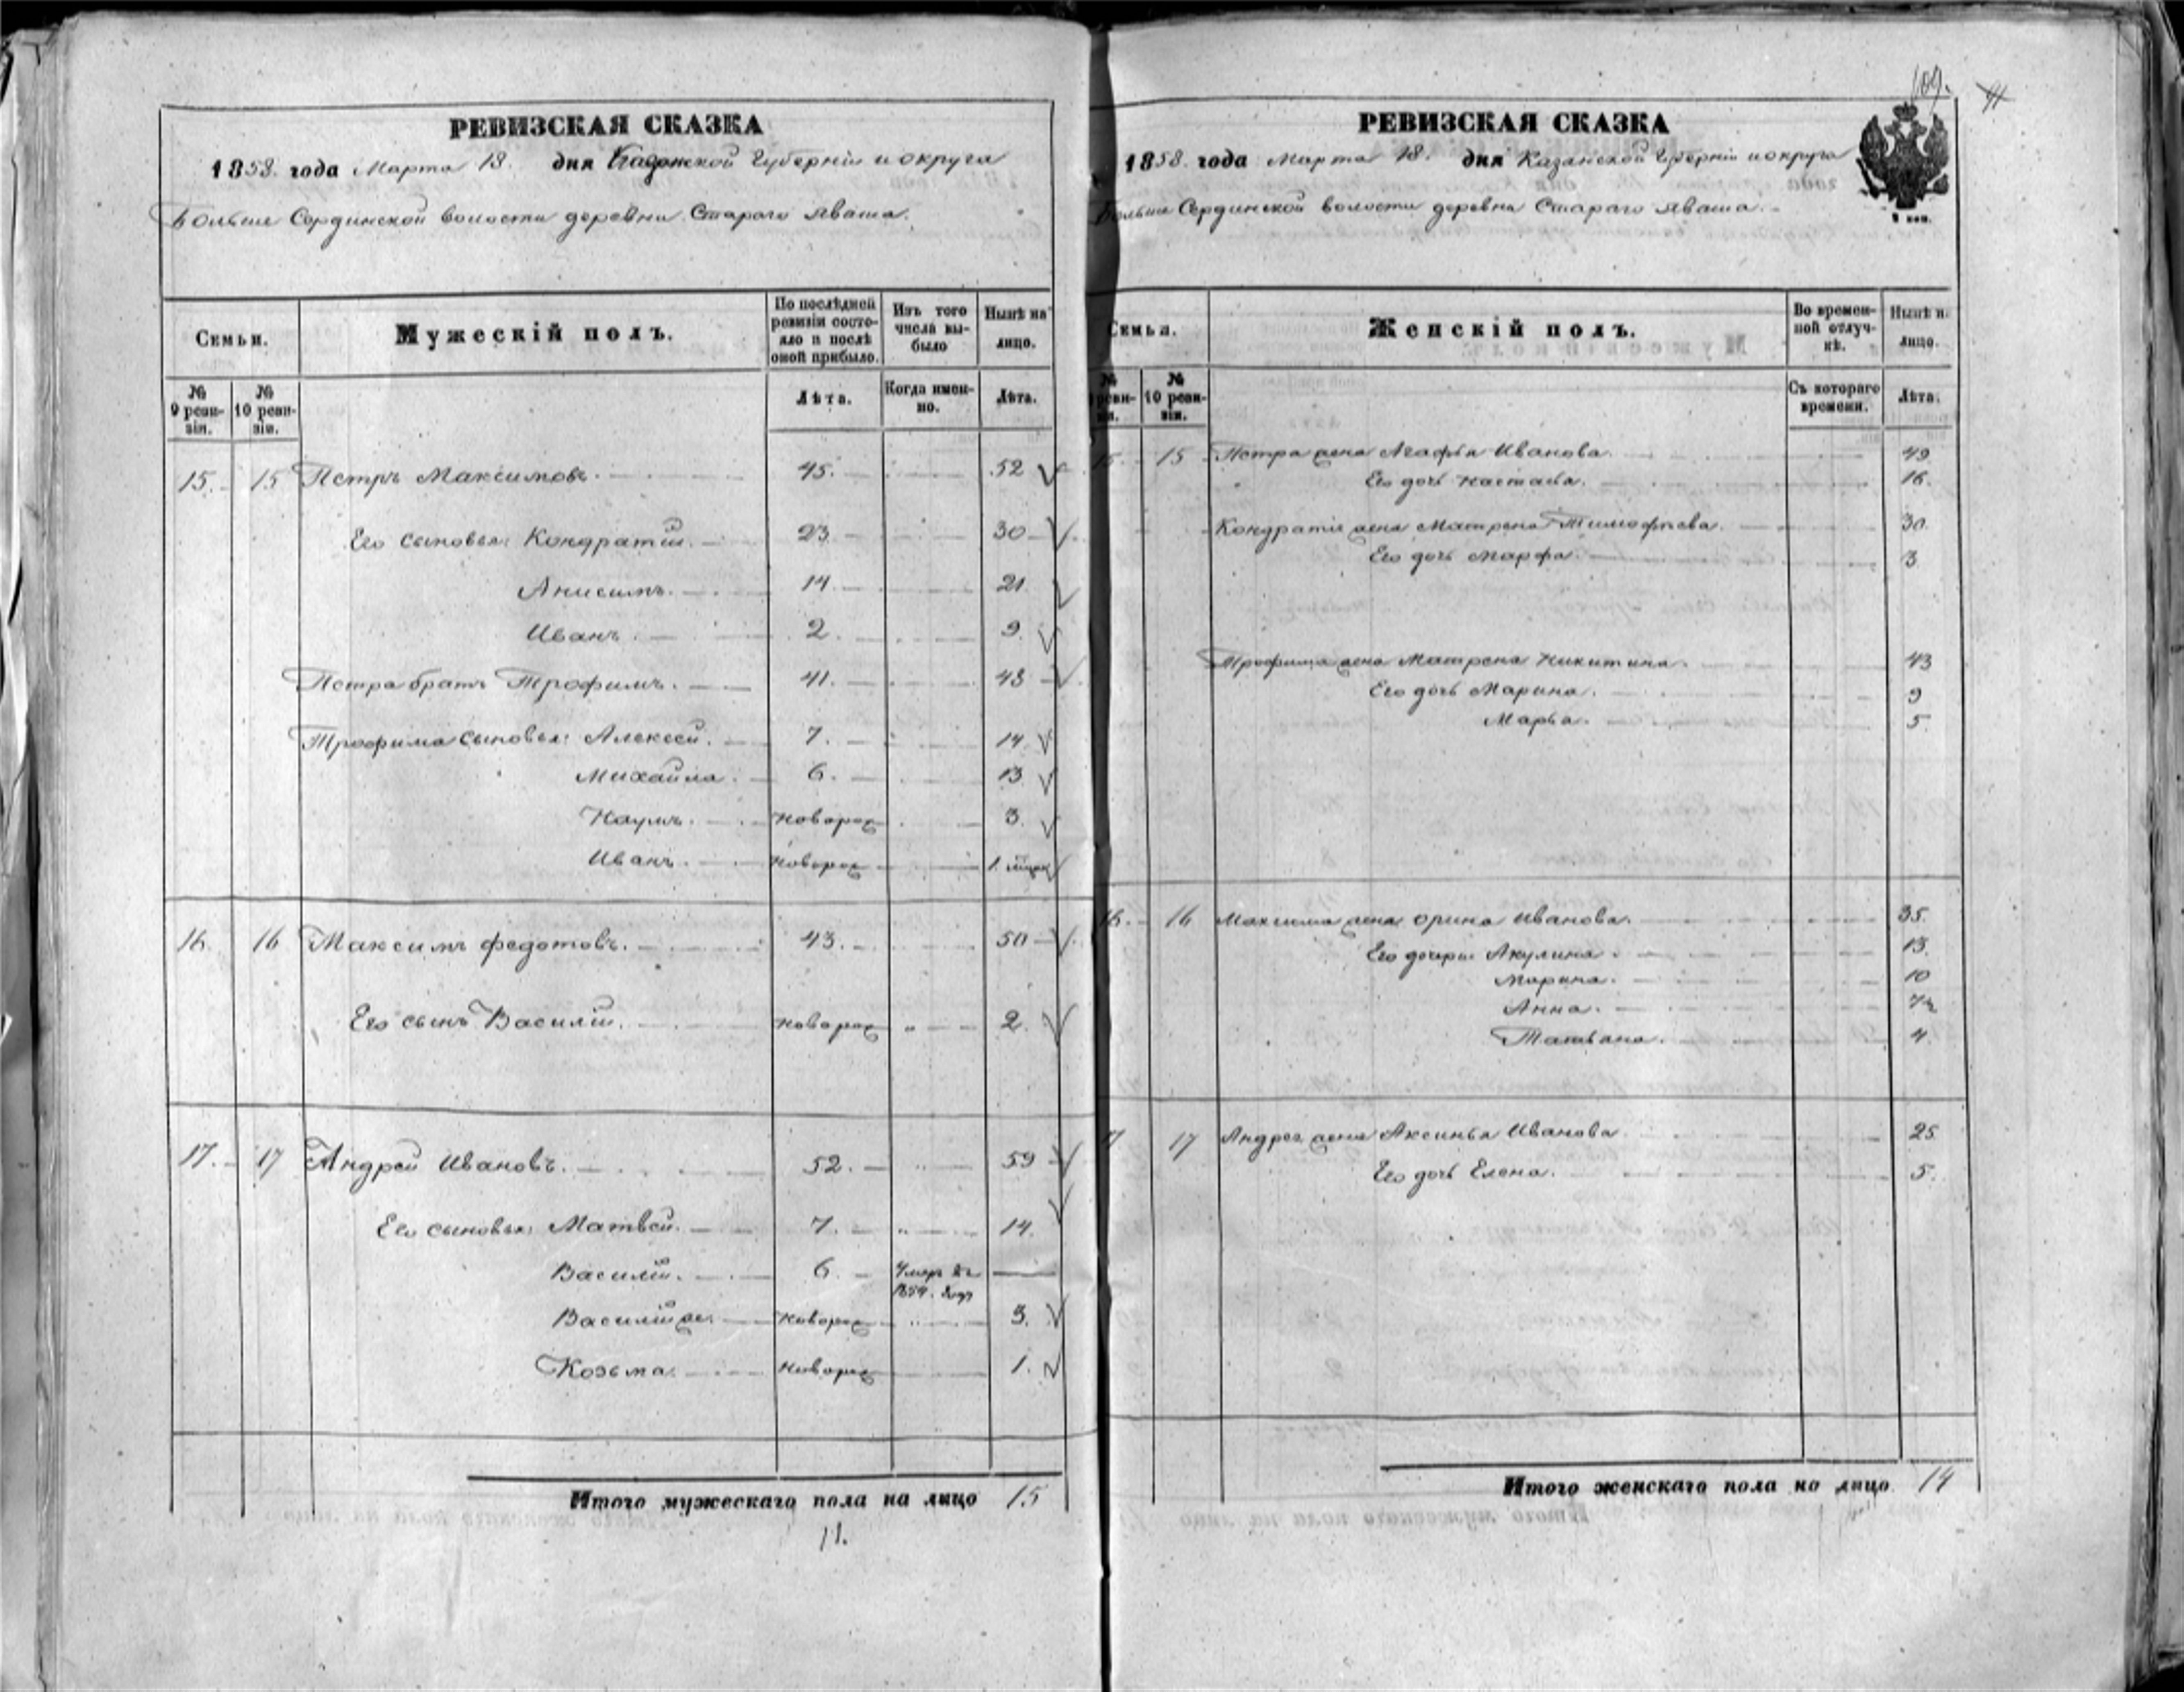 РЕВИЗСКАЯ СКАЗКА
1858. года Марта 18. дня Казанской Губернiи и округа
Больше Сординской волости деревни Стараго Яваша.
Семьи.
Мужескiй полъ.
По послѣдней ревизiи состояло и послѣ оной прибыло.
Изъ того числа выбыло
Нынѣ на лицо.
№ 9 ревизiи.
№ 10 ревизiи.
Лѣта.
Когда именно.
Лѣта.
15. 15 Петръ Максимовъ. 45. 52
Его сыновья: Кондратiй. 23 30
Анисимъ. 14. 21
Иванъ. 2. 9.
Петра братъ Трофимъ. 41. 48
Трофима сыновья: Алексей. 7. 14
Михайла. 6. 13
Наумъ. новорож 3.
Иванъ. новорож 1.
16. 16 Максимъ Федотовъ. 43. 50
Его сынъ Василiй. новорож 2.
17. 17 Андрей Ивановъ. 52. 59
Его сыновья: Матвей. 7. 14.
Василiй. 6. Умеръ въ
1854. году
Василiй же. новорож 3.
Козьма. новорож 1.
Итого мужескаго пола на лицо 15
11.
109.
РЕВИЗСКАЯ СКАЗКА
1858. года Марта 18. дня Казанской Губернiи и округа
Больше Сординской волости деревни Стараго Яваша.
Семьи.
Женскiй полъ.
Во временной отлучкѣ.
Нынѣ на лицо.
№ 9 ревизiи.
№ 10 ревизiи.
Съ котораго времени.
Лѣта.
15. 15 Петра жена Агафья Иванова. 49
Его дочь Настасья. 16.
Кондратiя жена Матрена Тимофѣева. 30.
Его дочь Марфа. 3
Трофима жена Матрена Никитина. 43
Его дочь Марина. 9
Марья. 5.
16. 16 Максима жена Орина Иванова. 35.
Его дочери: Акулина. 13.
Марина. 10
Анна.
Татьяна. 4
17 17 Андрея жена Аксинья Иванова 25
Его дочь Елена. 5.
Итого женскаго пола на лицо 14